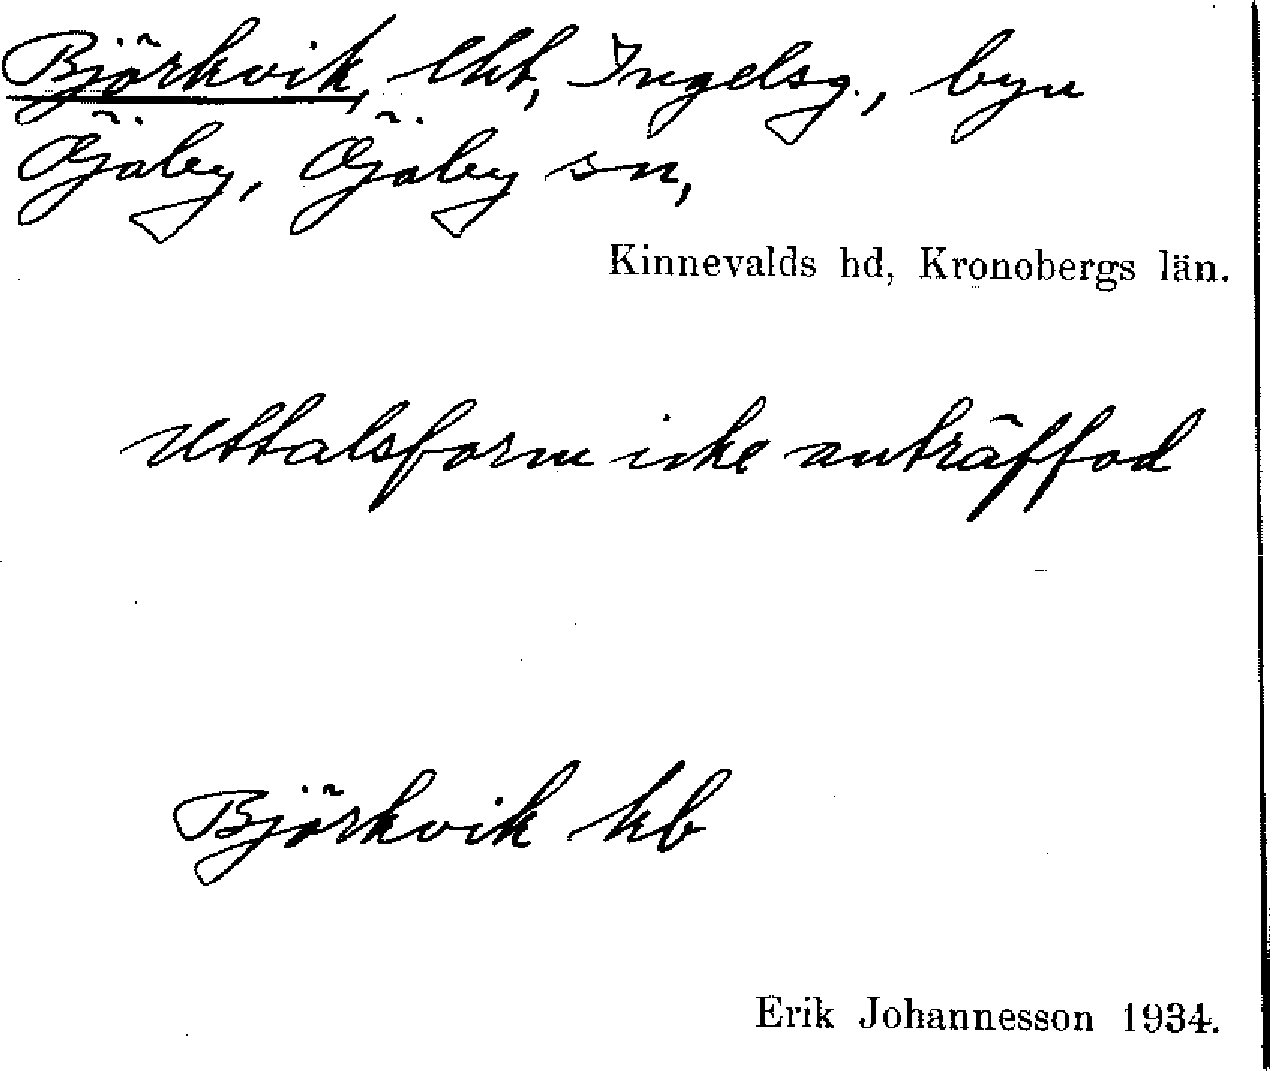 Björkvik, lht, Ingelsg., byn
Öjaby, Öjaby sn,
Kinnevalds hd, Kronobergs län.
Uttalsform icke anträffad
Björkvik kb
Erik Johannesson 1934.